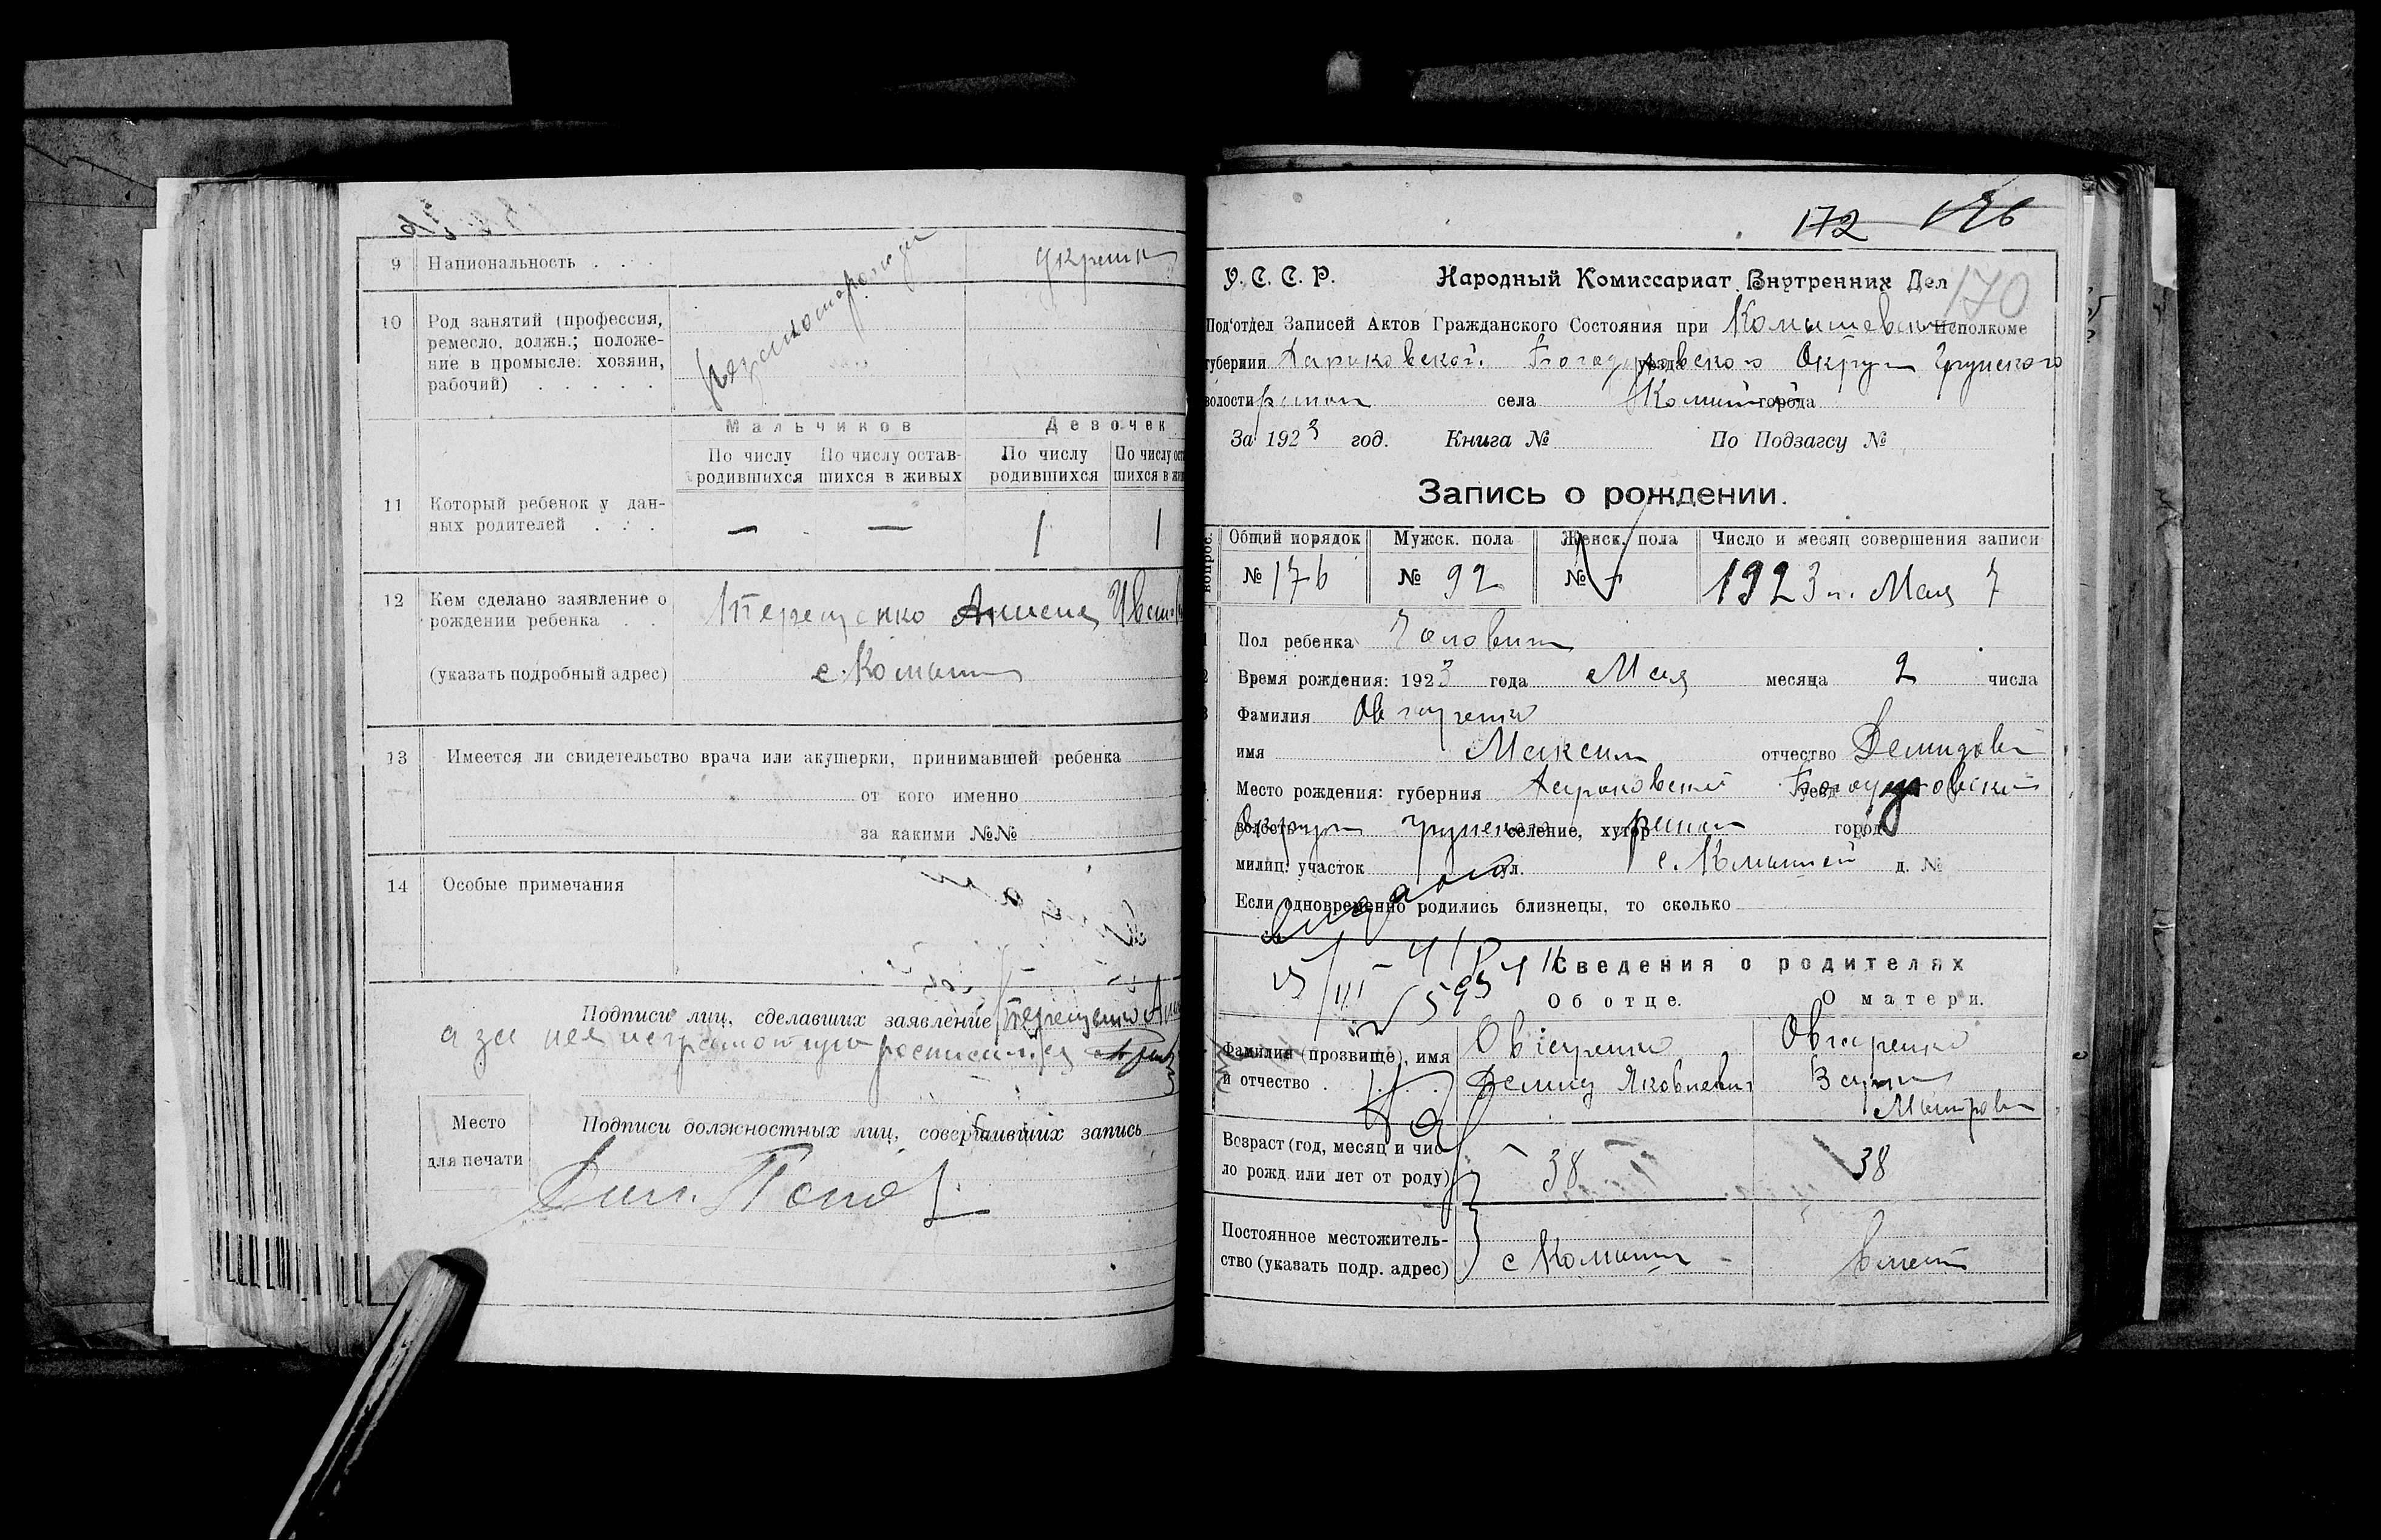 9 Национальность . . .
10 Род занятий (профессия,
ремесло, должн.; положе-
ние в промысле: хозяин,
рабочий) . . . . .
Мальчиков Девочек
По числу родившихся По числу остав-шихся в живых По числу родившихся
11 Который ребенок у дан-
ных родителей . . .
— — 1 1
12 Кем сделано заявление о
рождении ребенка . .
Терещенко
(указать подробный адрес)
с. Комыши
13 Имеется ли свидетельство врача или акушерки, принимавшей ребенка
от кого именно
за какими №№
14 Особые примечания
Подписи лиц, сделавших заявление Терещенко
а за нея неграмотную росписался
Место
для печати
Подписи должностных лиц, совершивших запись
172 176
170
У. С. С. Р. Народный Комиссариат Внутренних Дел
Под'отдел Записей Актов Гражданского Состояния при Комышевском Исполкоме
губернии Харьковской Богодуховского уезда Округа Грунского
волости района села Комыши города
За 1923 год. Книга № По Подзагсу №
Запись о рождении.
Общий порядок Мужск. пола Женск. пола Число и месяц совершения записи
№ 176 № 92 № 1923 г. Мая 7
Пол ребенка
Время рождения: 1923 года Мая месяца 2 числа
Фамилия Овчаренко
имя Максим отчество Демидов
Место рождения: губерния Харьковской уезд Богодуховский
волость Округ Грунского селение, хутор район город
милиц. участок ул. с. Комышей д. №
Если одновременно родились близнецы, то сколько
Сведения о родителях
Об отце. О матери.
Фамилия (прозвище), имя
и отчество .
Овчаренко
Демид Яковлевич
Овчаренко
Возраст (год, месяц и чис-
ло рожд. или лет от роду)
38 38
Постоянное местожитель-
ство (указать подр. адрес)
с Комыши
вместе